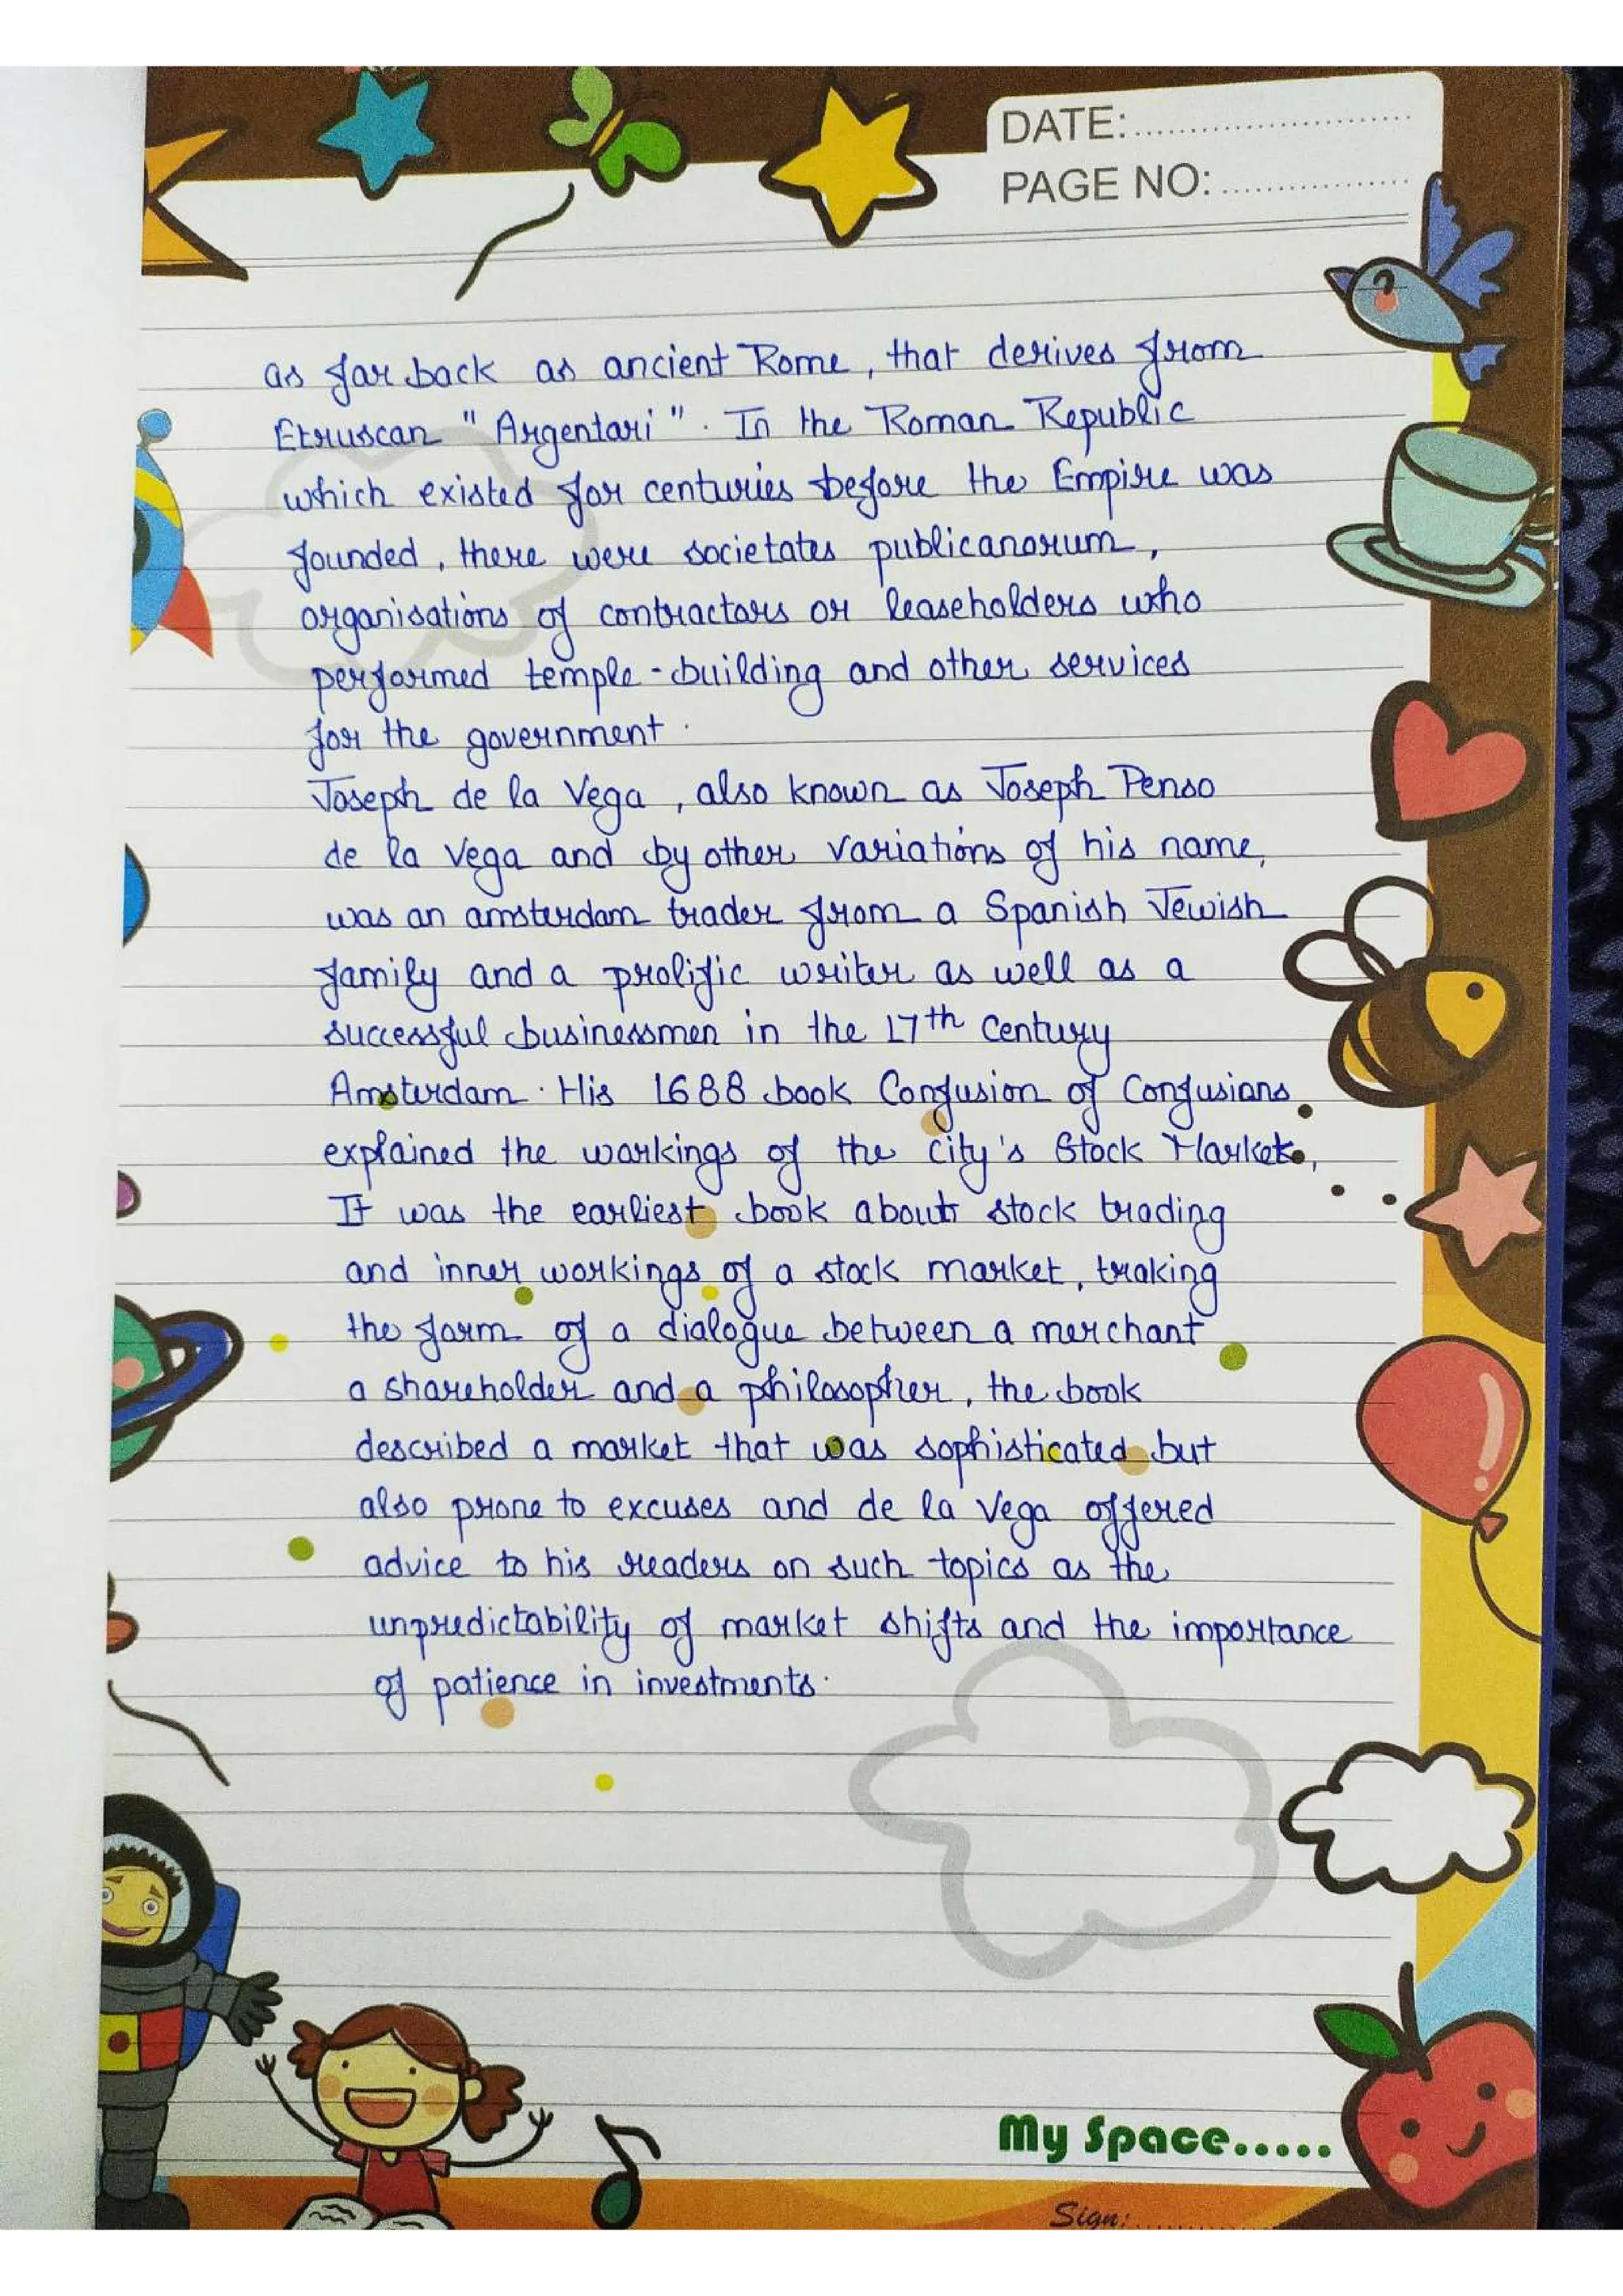 DATE:
PAGE NO:
as far back as ancient Rome, that derives from
Etruscan "Argentari". In the Roman Republic
which existed for centuries before the Empire was
founded, there were societates publicanorum,
organisations of contractors or leaseholders who
performed temple-building and other services
for the government.
Joseph de la Vega, also known as Joseph Penso
de la Vega and by other variations of his name,
was an amsterdam trader from a Spanish Jewish
family and a prolific writer as well as a
successful businessmen in the 17th century
Amsterdam. His 1688 book Confusion of Confusions
explained the workings of the city's Stock Market,
It was the earliest book about stock trading
and inner workings of a stock market, traking
the form of a dialogue between a merchant
a shareholder and a philosopher, the book
described a market that was sophisticated but
also prone to excuses and de la Vega offered
advice to his readers on such topics as the
unpredictability of market shifts and the importance
of patience in investments.
My Space.....
Sign: